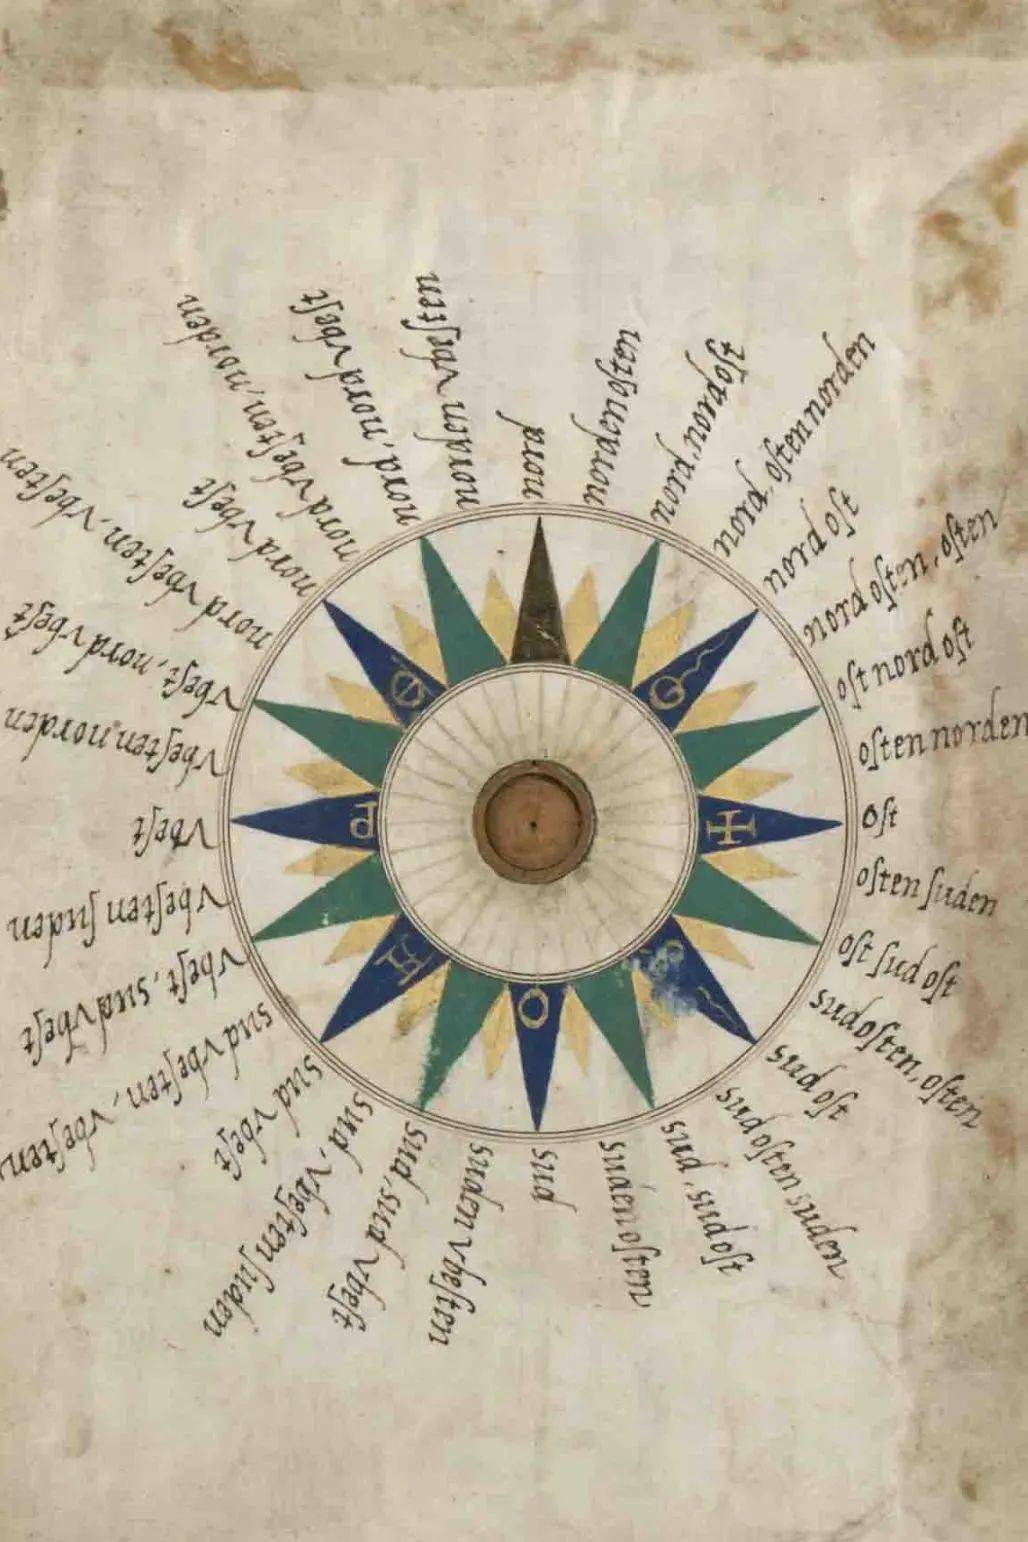 nord
norden osten
nord, nord ost
nord, osten norden
nord ost
nord osten, osten
ost nord ost
osten norden
ost
osten suden
ost sud ost
sudosten, osten
sud ost
sud osten suden
sud, sud ost
suden osten
sud
suden vbesten
sud, sud vbest
sud, vbesten suden
sud vbest
sud vbesten, vbesten
vbest, sud vbest
vbesten suden
vbest
vbesten norden
vbest, nord vbest
nord vbesten, vbesten
nord vbest
nord vbesten, norden
nord, nord vbest
norden vbesten
P
O